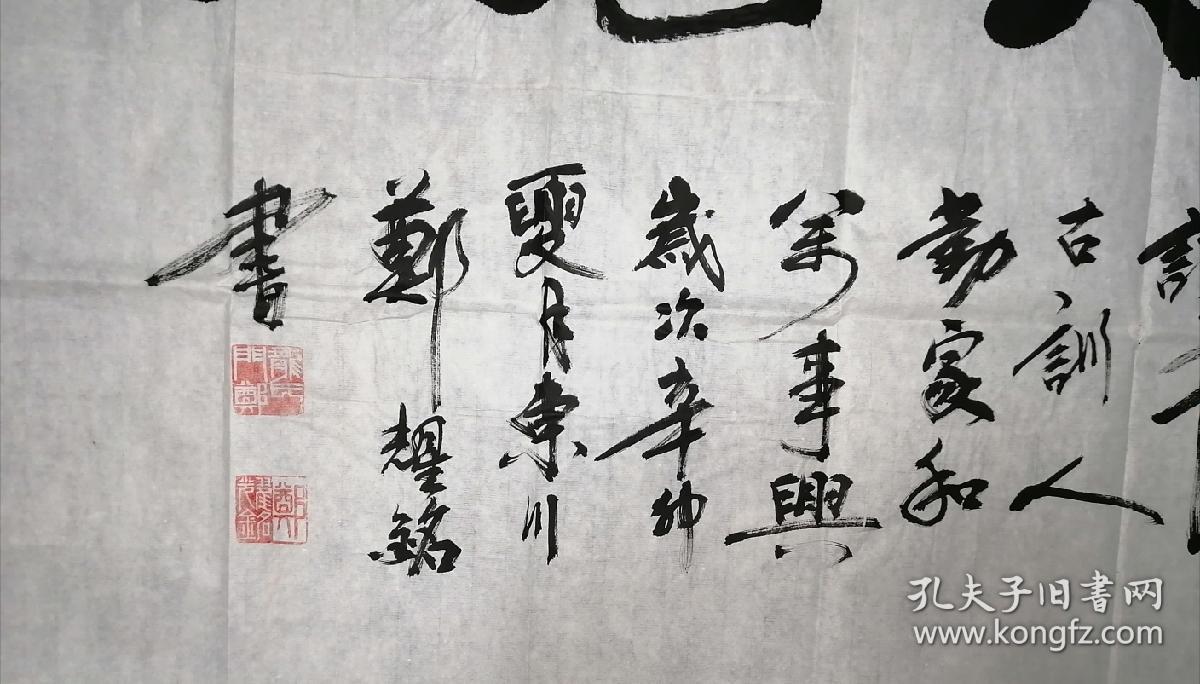 古訓人
勤家和
萬事興
歲次辛卯
夏月東川
鄭耀銘
書
孔夫子旧书网
www.kongfz.com